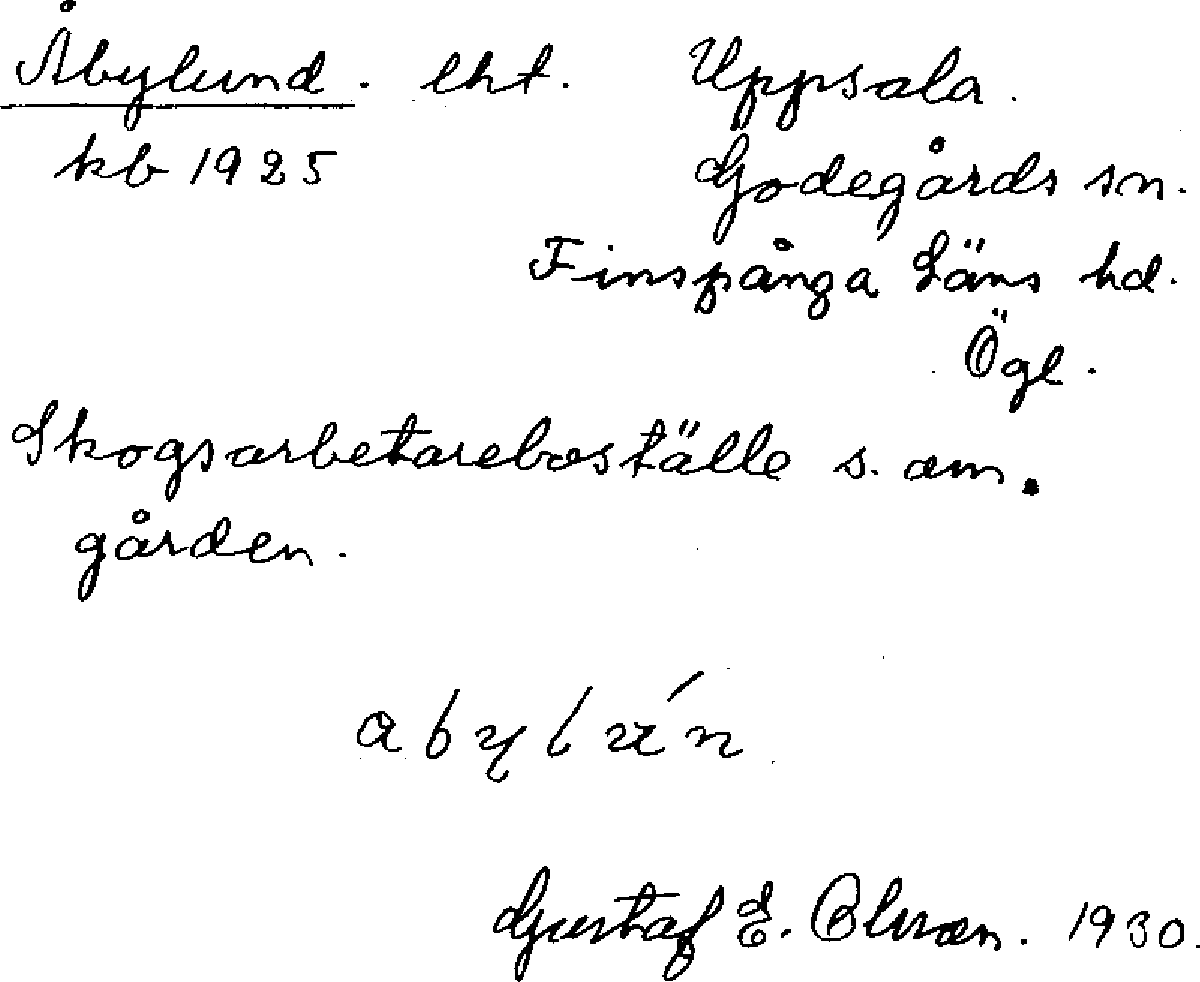 Åbylund. lht. Uppsala.
kb 1925 Godegårds sn.
Finspånga Läns hd.
Ögl.
Skogsarbetareboställe s. om.
gården.
Gustaf E. Olsson. 1930.